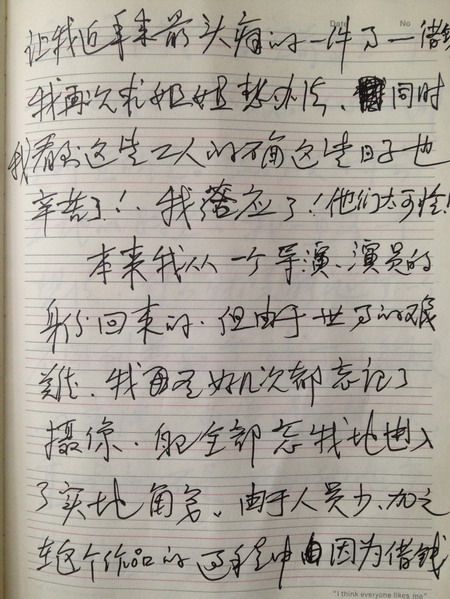 Date No
让我近年来最头痛的一件事一借钱
我再次求姐姐想办法、同时
我看到这些工人的面这些日子也
辛苦了！、我答应了！他们太可怜！
本来我从一个导演、演员的
身份回来的、但由于世事的艰
难、我甚至好几次都忘记了
摄像、自己全部忘我地进入
了实地角色。由于人员少、加之
在这个作品的过程中由因为借钱
"I think everyone likes me"